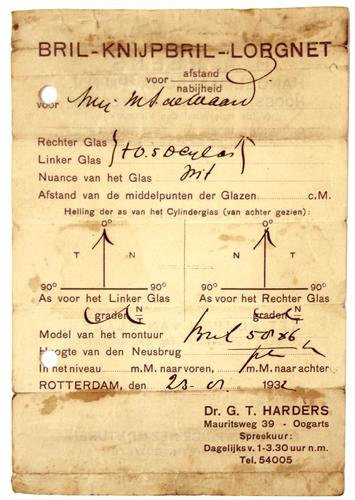 BRIL-KNIJPBRIL-LORGNET
voor afstand
nabijheid
voor
Rechter Glas
Linker Glas
Nuance van het Glas wit
Afstand van de middelpunten der Glazen c.M.
Helling der as van het Cylinderglas (van achter gezien):
0° 0°
T N T N
90° 90° 90° 90°
As voor het Linker Glas As voor het Rechter Glas
graden N/T graden N/T
Model van het montuur bril
Hoogte van den Neusbrug
In net niveau m.M. naar voren, m.M. naar achter
ROTTERDAM, den 1932
Dr. G. T. HARDERS
Mauritsweg 39 - Oogarts
Spreekuur:
Dagelijks v. 1-3.30 uur n.m.
Tel. 54005